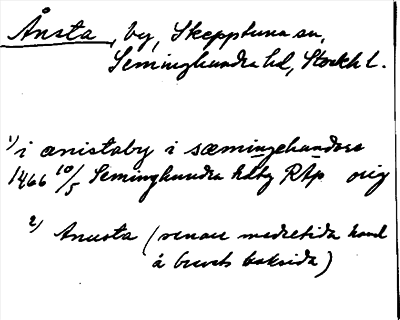 Ånsta, by, Skepptuna sn,
Seminghundra hd, Stockh l.
1) i ænistaby i sæmingehundare
1466 10/5 Seminghundra hdtg RAp orig
2) Anusta (senare medeltida hand
å brevets baksida)